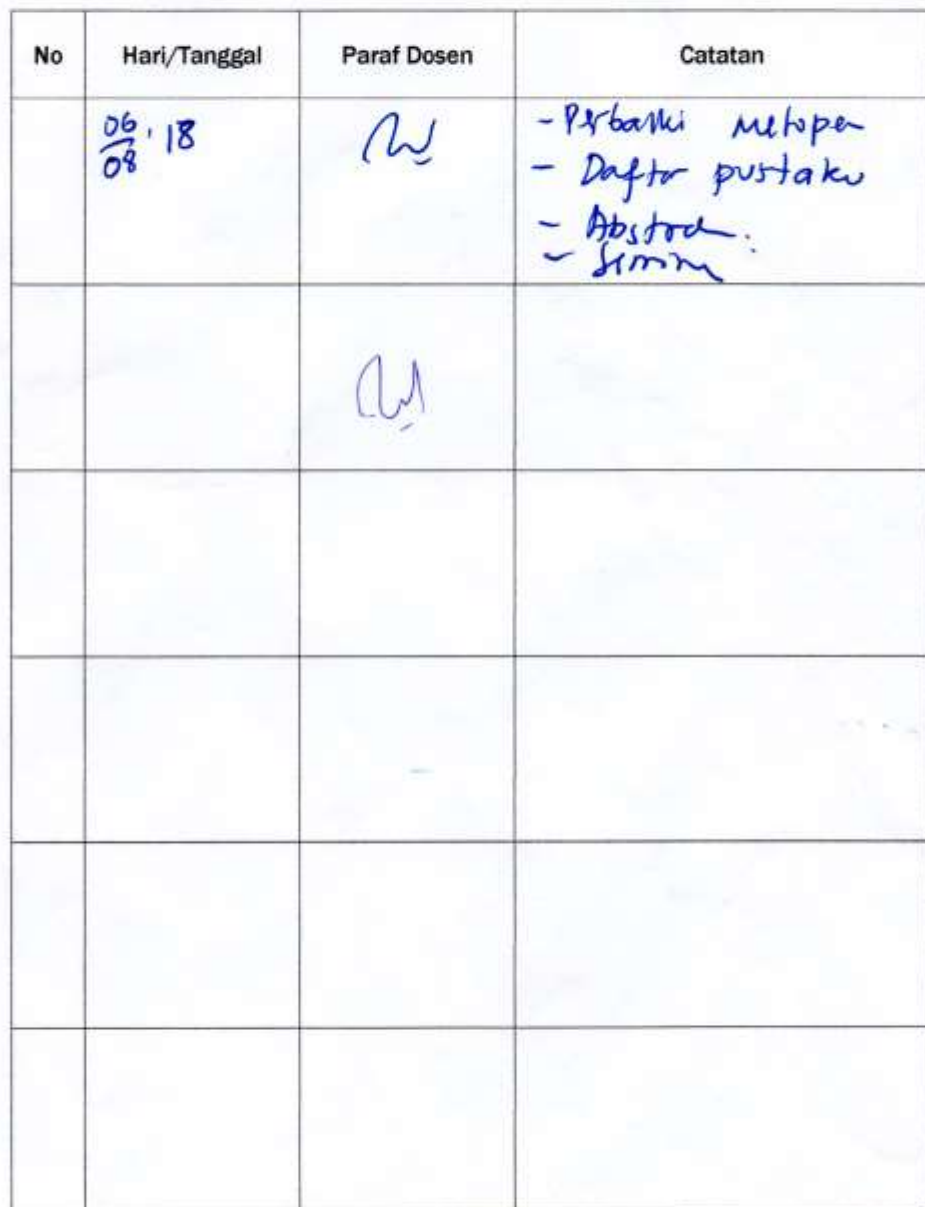 No Hari/Tanggal Paraf Dosen Catatan
06/08 · 18
- Perbaiki metopen
- Daftar pustaka
- Abstrack.
-